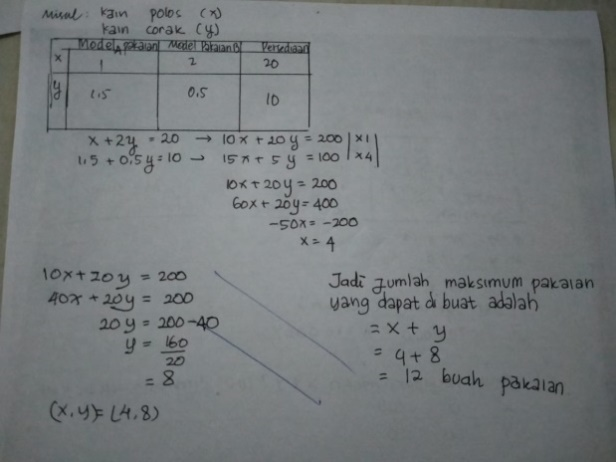 misal: kain polos (x)
kain corak (y)
Model A pakaian | Model Pakaian B | Persediaan
x | 1 | 2 | 20
y | 1.5 | 0.5 | 10
x + 2y = 20 → 10x + 20y = 200 | x1
1,5 + 0,5y = 10 → 15x + 5y = 100 | x4
10x + 20y = 200
60x + 20y = 400
-50x = -200
x = 4
10x + 20y = 200
40x + 20y = 200
20y = 200 - 40
y = 160/20
= 8
(x,y) = (4,8)
Jadi jumlah maksimum pakaian
yang dapat di buat adalah
= x + y
= 4 + 8
= 12 buah pakaian